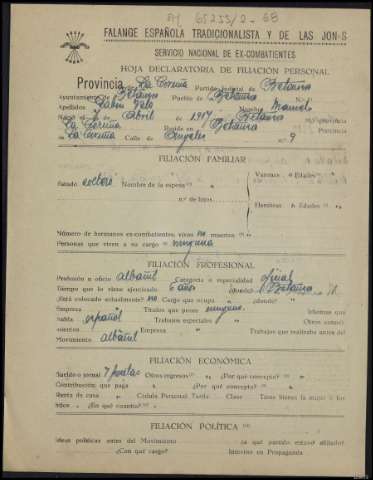 65233/2-68
FALANGE ESPAÑOLA TRADICIONALISTA Y DE LAS JON-S
SERVICIO NACIONAL DE EX-COMBATIENTES
HOJA DECLARATORIA DE FILIACIÓN PERSONAL
Provincia La Coruña Partido Judicial de Betanzos
Ayuntamiento de Betanzos Pueblo de Betanzos N.º
Apellidos Nombre Manuel
Nació el de Abril de 1917 en Betanzos Provincia
La Coruña Reside en Betanzos Provincia
La Coruña Calle de Angeles n.º 9
FILIACIÓN FAMILIAR
Estado soltero Nombre de la esposa Varones Edades
n.º de hijos Hembras Edades
Número de hermanos ex-combatientes, vivos muertos
Personas que viven a su cargo ninguna
FILIACIÓN PROFESIONAL
Profesión u oficio albañil Categoría o especialidad oficial
Tiempo que lo viene ejerciendo 6 años Betanzos
¿Está colocado actualmente? no Cargo que ocupa ¿dónde?
Empresa Títulos que posee ninguno Idiomas que
habla español Trabajos especiales Otros
Empresa Trabajos que realizaba antes del
Movimiento albañil
FILIACIÓN ECONÓMICA
Sueldo o jornal 7 pesetas Otros ingresos ¿Por qué concepto?
Contribución que paga ¿Por qué concepto?
de casa Cédula Personal Tarifa Clase Tiene bienes la mujer o los
hijos ¿En qué cuantía?
FILIACIÓN POLÍTICA
Ideas políticas antes del Movimiento ¿a qué partido estuvo afiliado?
¿Con qué cargo? Intervino en Propaganda